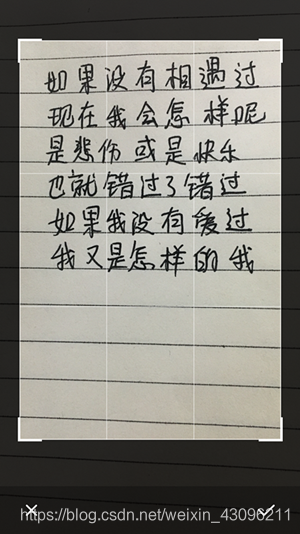 如果没有相遇过
现在我会怎样呢
是悲伤或是快乐
也就错过了错过
如果我没有爱过
我又是怎样的我
https://blog.csdn.net/weixin_43096211